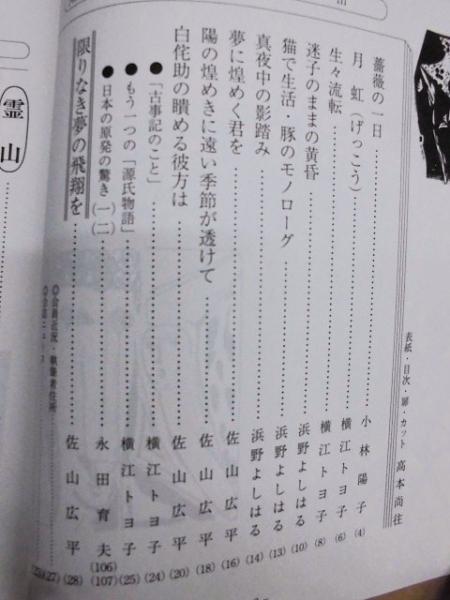 表紙 目次・扉・カット 高本尚往
薔薇の一日 小林陽子 (4)
月 虹(げっこう) 横江トヨ子 (6)
生々流転 横江トヨ子 (8)
迷子のままの黄昏 浜野よしはる (10)
猫で生活・豚のモノローグ 浜野よしはる (13)
真夜中の影踏み 浜野よしはる (14)
夢に煌めく君を 佐山広平 (16)
陽の煌めきに遠い季節が透けて 佐山広平 (18)
白侘助の瞶める彼方は 佐山広平 (20)
●「古事記のこと」 横江トヨ子 (24)
●もう一つの「源氏物語」 横江トヨ子 (25)
●日本の原発の驚き(一)(二) 永田育夫 (106)(107)
限りなき夢の飛翔を 佐山広平 (28)
◎会員近況・執筆者住所 (27)
霊山